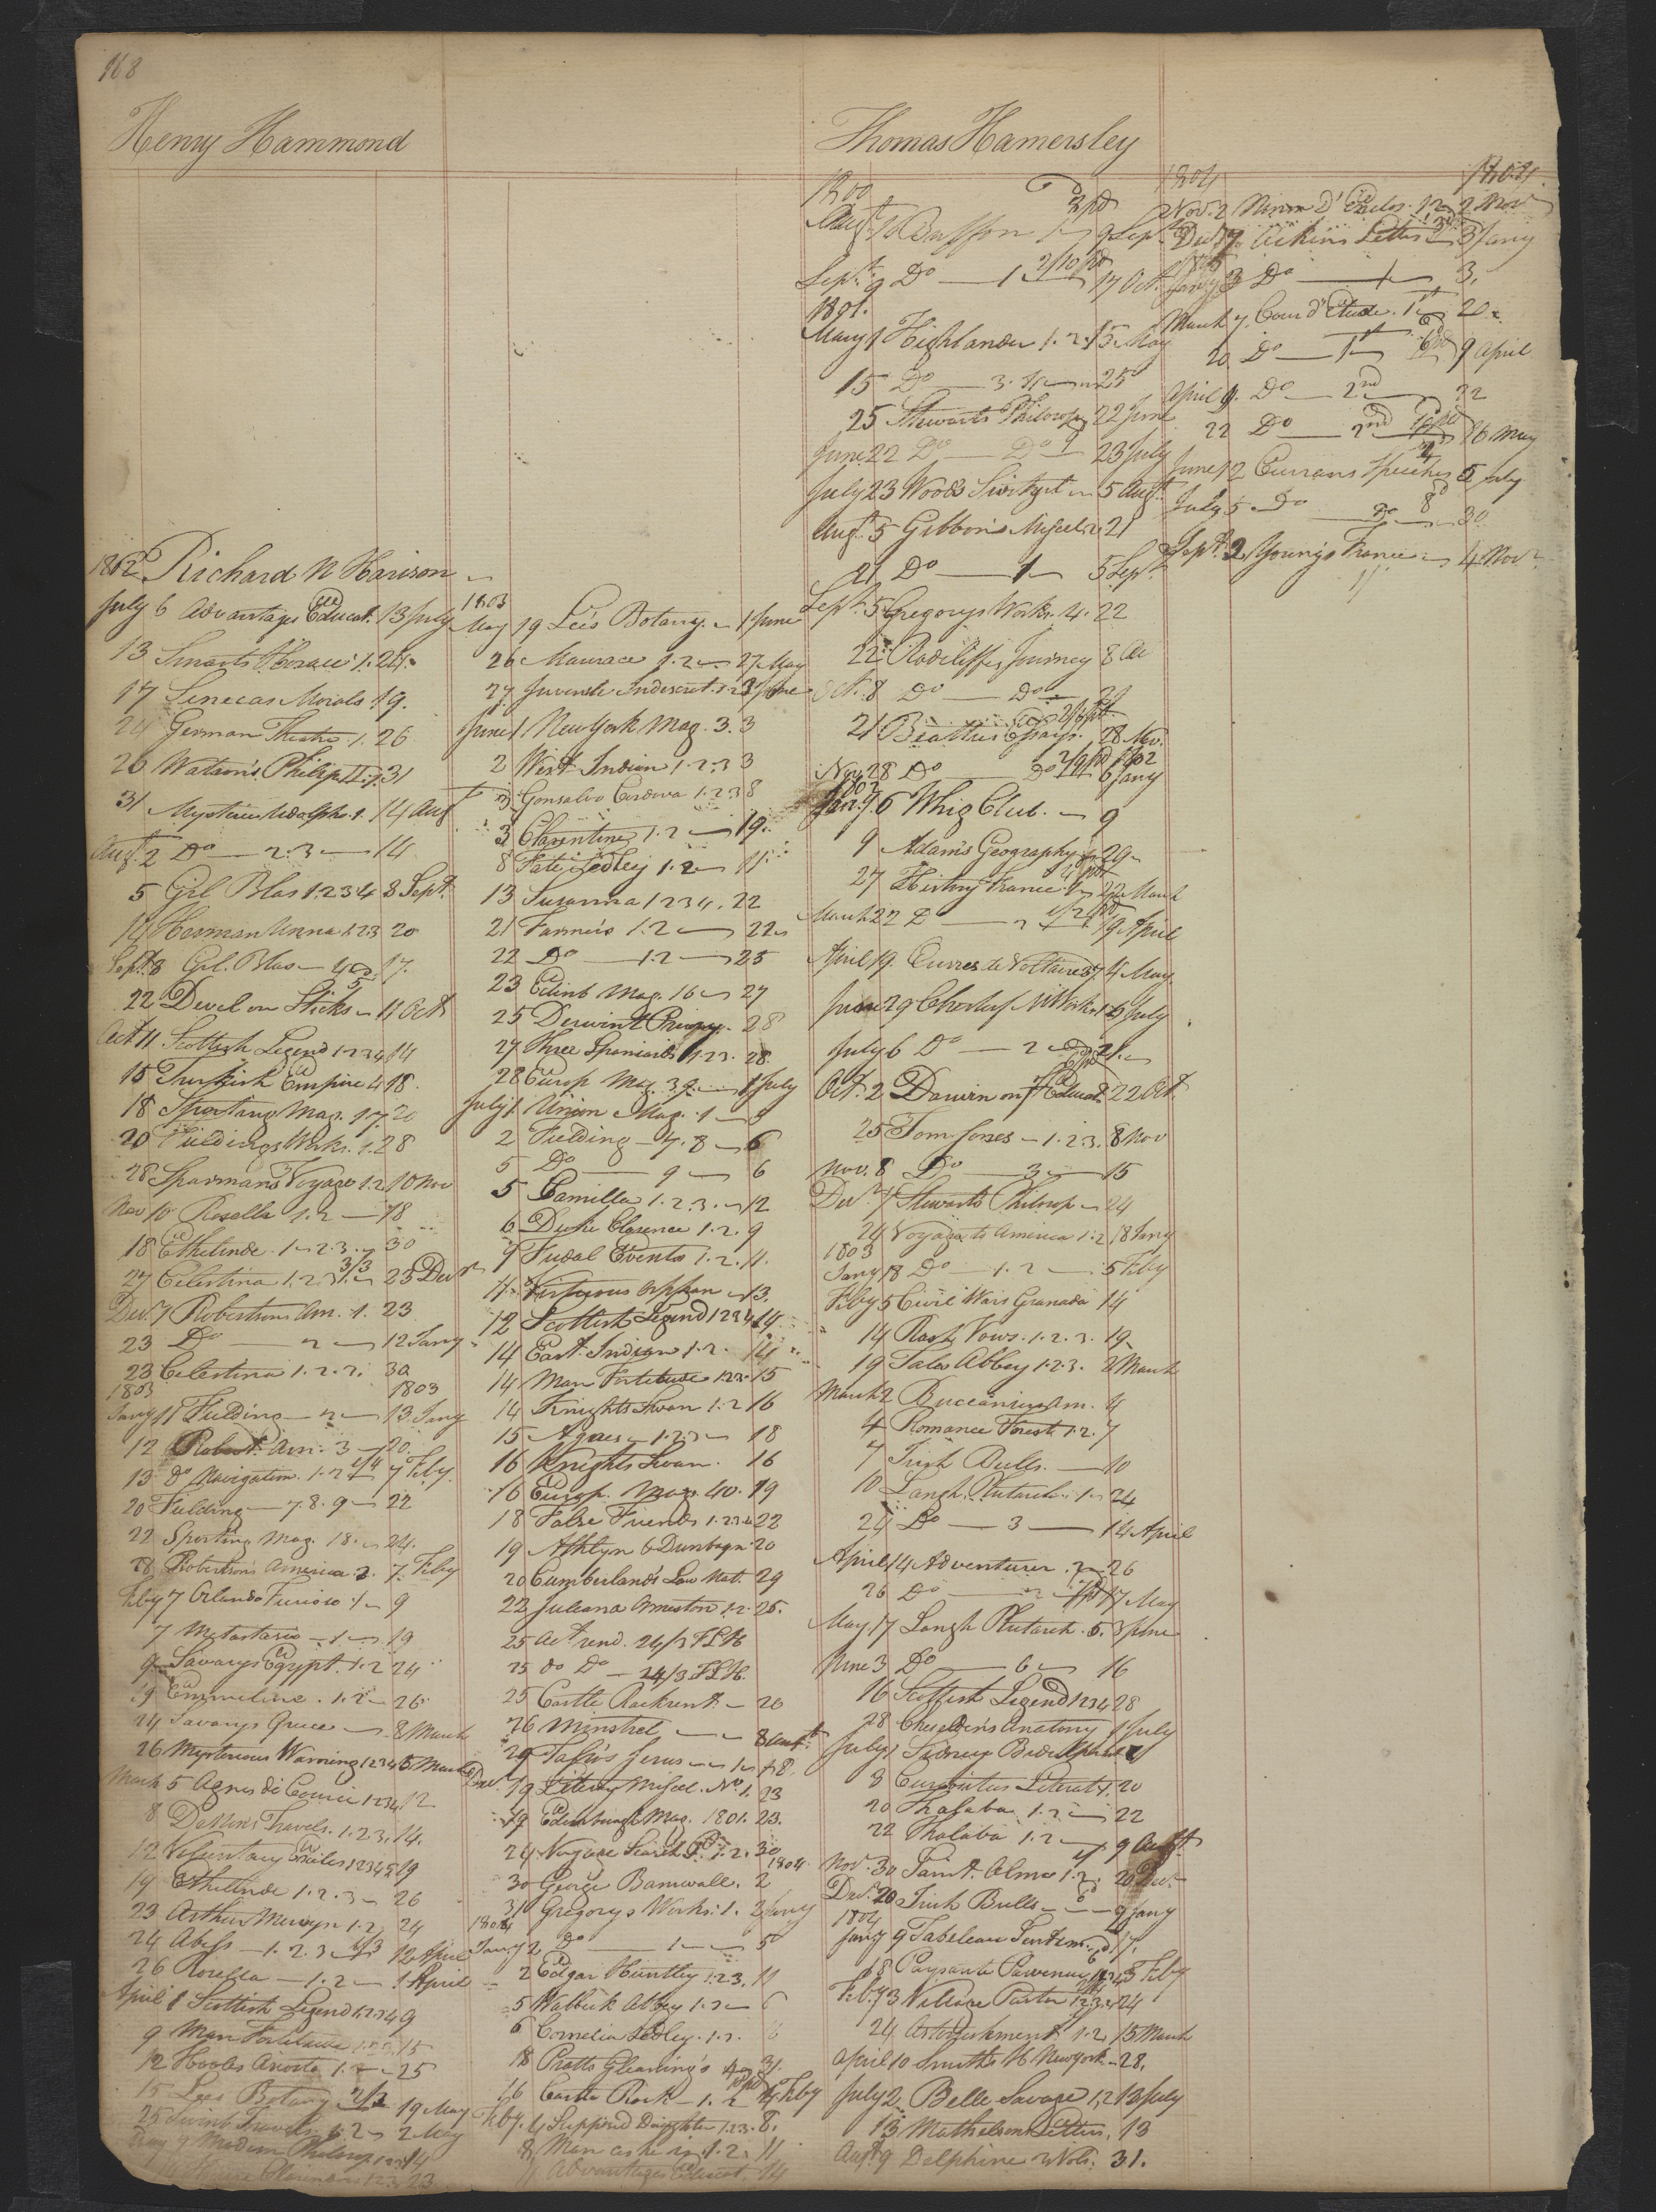 168
Henry Hammond
1802 Richard N Harison
July 6 Advantages Educat. 13 July
13 Smarts Horace 1. 24
17 Senecas Morals 19.
24 German Theatre 1. 26
26 Watson's Philip II 31
31 Mysteries Udolpho 1. 14 Aug
Augt. 2 Do 2.3 14
5 Gil Blas 1.2.3.4 8 Sept.
14 Herman Unna 1.2.3 20
Sept. 8 Gil Blas 17.
22 Devil on Sticks 11 Oct
Oct 11 Scottish Legend 1.2.3.4 14
15 Turkish Empire 4 18.
18 Sporting Mag. 17. 20
20 Fieldings Works. 1. 28
28 Sparman's Voyage 1.2. 10 Nov
Nov 10 Rosella 1.2 18
18 Ethelinde 1.2.3. 30
27 Celestina 1.2.3. 3/3 23 Decr
Decr. 7 Robertsons Am. 1. 23
23 Do 2 12 Jany
23 Celestina 1.2.3. 30
1803 1803
Jany 11 Fielding 2 13 Jany
12 Robert. Am. 3 20.
13 do Navigation. 1.2 7 Feby.
20 Fielding 7.8.9 22
22 Sporting Mag. 18. 24.
28 Robertson's America 2. 7. Feby
Feby 7 Orlando Furioso 1 9
7 Metastasio 1. 19
9 Savarys Egypt. 1.2 24
19 Emmeline. 1.2 26
24 Savarys Greece 8 March
26 Mysterious Warning 1.2.3.4 5 March
March 5 Agnes de Courci 1.2.3.4 12
8 Travels. 1.2.3. 14.
12 Voluntary Exiles 1.2.3.4.5 19
19 Ethelinde 1.2.3 26
23 Arthur Mervyn 1.2 24
24 Abess 1.2.3 12 April
26 Rosella 1.2 1 April
April 1 Scottish Legend 1.2.3.4 9
9 Man Fortitude 1.2.3. 15
12 Hooles Ariosto 1.2 25
15 Lees Botany 19 May
25 Travels 1.2 2 May
May 9 Modern Philosop. 1.2.3 14
1803
May 19 Lee's Botany. 1 June
26 Maurace 1.2 27 May
27 Juvenile Indiscret. 1.2.3 June
June 1 New York Mag. 3. 3
2 West Indian 1.2.3 3
3 Gonsalvo Cordova 1.2.3 8
3 Clarentine 1.2 19.
8 Fate Sedley 1.2 11
13 Susanna 1.2.3.4. 22
21 Farmers 1.2 22
22 Do 1.2 25
23 Edinb Mag. 16 27
25 Derwint Priory. 28
27 Three Spaniards 1.2.3. 28
28 Europ Mag. 39. 1 July
July 1 Union Mag. 1
2 Fielding 7.8 6
5 Do 9 6
5 Camilla 1.2.3. 12
6 Duke Clarence 1.2. 9
9 Fudal Events 1.2. 11.
11 Virtuous Orphan 13.
12 Scottish Legend 1.2.3.4 14
14 East Indian 1.2. 14
14 Man Fortitude 1.2.3. 15
14 Knights Swan 1.2 16
15 Agnes 1.2.3 18
16 Knights Swan. 16
16 Europ. Mag. 40. 19
18 False Friends 1.2.3.4 22
19 Athlyn & Dunbayn 20
20 Cumberland's Law Nat. 29
22 Juliana Ormeston 1.2. 25.
25 act rend. 24/3 FLH
25 do Do 24/3 FLH.
25 Castle Rackrent 26
26 Minstrel 8 Augt.
29 Jesus 18.
Decr. 19 Literary Miscel. No. 1. 23
19 Edinburgh Mag. 1801. 23.
24 Voyage Search P. 1.2. 30
1804
30 George Barnwall. 2
31 Gregorys Works 1. 2 Jany
1804
Jany. 2 Do 1 5
2 Edgar Huntley 1.2.3. 11
5 Walbeck Abbey 1.2 6
6 Cornelia Sedley. 1.2. 6
18 Pratts Gleanings 31.
16 Castle Rock 1.2 4 Feby
Feby. 4 Supposed Daughter 1.2.3. 8.
8 Man as he is. 1.2. 11
11 Advantages Educat. 14
Thomas Hamersley
1800
Augt. Buffon 1 9 Sept
Sept. 9 Do 1 17 Oct.
1801.
May 1 Highlander 1.2. 15 May
15 Do 3. 25
25 Stewarts Philosop 22 June
June 22 Do Do 23 July
July 23 Woods Switzt 5 Augt.
Augt. 5 Gibbon's Miscel. 2 21
21 Do 1 5 Sept.
Sept. 5 Gregorys Works. 4. 22
22 Radcliffes Journey 8 Oc
Oct. 8 Do Do 21
21 Beatties Essays. 28 Nov.
Nov 28 Do Do 6 Jany
1802
Jany. 6 Whig Club. 9
9 Adam's Geography 29
27 History France 1 22 March
March 22 D 2 19 April
April 19. Euvres de Voltaire 37 4 May
June 29 Chesterf. M Works 1 6 July
July 6 Do 2 21.
Oct. 2 Darwin on F Educat 22 Oct
25 Tom Jones 1.2.3. 8 Nov
Nov. 8 Do 3 15
Decr 7 Stewarts Philosop 24
24 Voyage to America 1.2 18 Jany
1803
Jany 18 Do 1.2 5 Feby
Feby 5 Civil Wars Granada 14
14 Rash Vows. 1.2.3. 19
19 Tales Abbey 1.2.3. 2 March
March 2 Buccaniers Am. 4
4 Romance Forest 1.2. 7
7 Irish Bulls. 10
10 Langh. Plutarch 1 24
24 Do 3 14 April
April 14 Adventurer. 2 26
26 Do 2 17 May
May 17 Langh Plutarch. 5. 3 June
June 3 Do 6 16
16 Scottish Legend 1.2.3.4 28
28 Cheselden's Anatomy 1 July
July 1 Sidney Bidulph
8 Curiosities Literat. 1. 20
20 Thalaba 1.2 22
22 Thalaba 1.2 9 Augt.
Nov. 30 Saint Elmo 1.2. 20 Dec.
Decr. 20 Irish Bulls 9 Jany
1804
Jany 9 Tableau 17.
18 Paysante Parvenue 1.2.3.4 3 Feby
Feby 3 Village Pastor 1.2.3. 24
24 Astonishment 1.2. 15 March
April 10 Smiths H New york 28.
July 2 Belle Savage 1.2 13 July
13 Mathelson Letters. 13
Augt. 9 Delphine 2 Vols. 31.
1804 1804.
Nov. 2 Ninon D'Enclos. 1.2 2 Nov
Decr. 7 Aikins Letters 3 Jany
Jany 3 Do 1 3.
March 7. Cour d'Etude. 1st 20
20 Do 1st 9 April
April 9. Do 2nd 22
22 Do 2nd 26 May
June 12 Currans Speeches 5 July
July 5 Do Do 30
Sept. 2 Young's France 4 Nov.